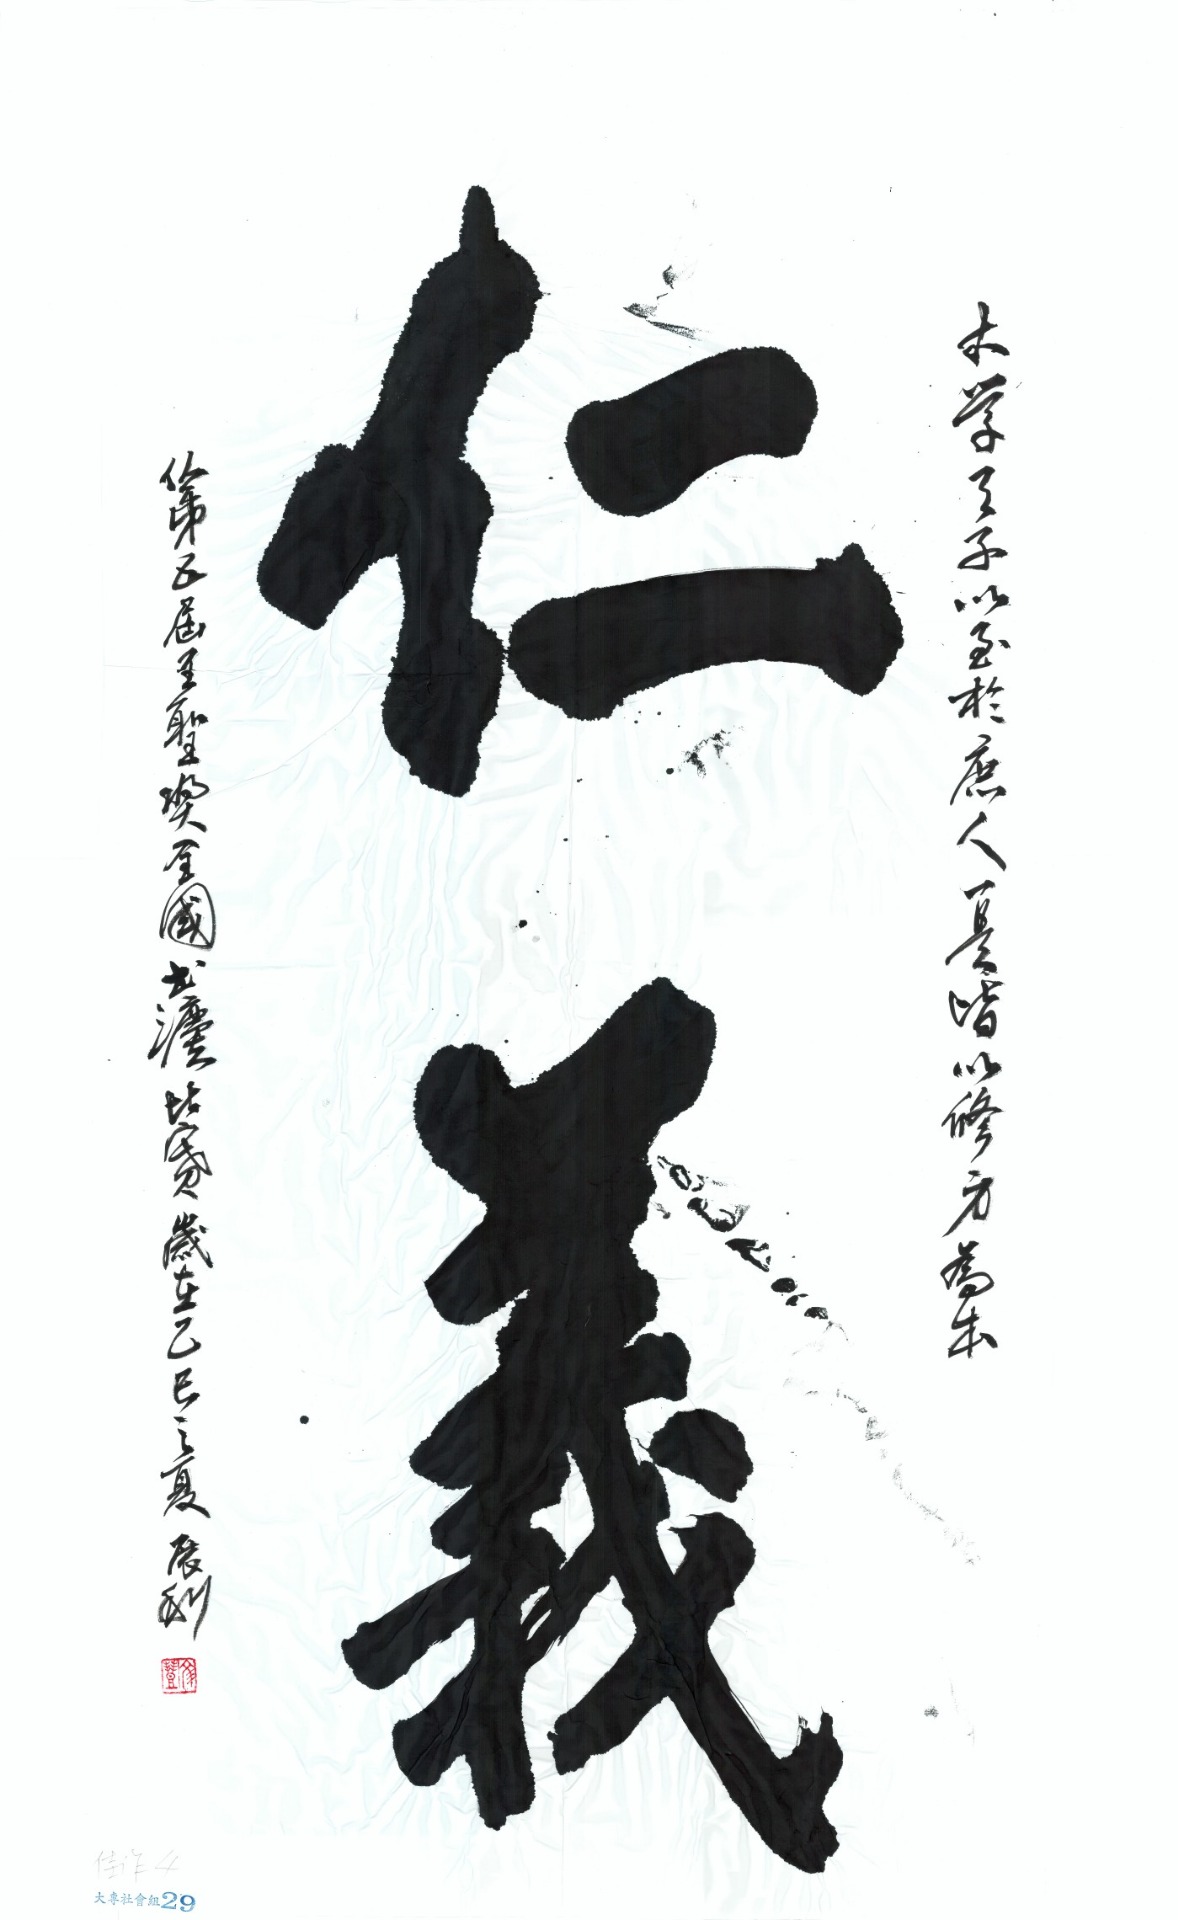 大學天子以至於庶人壹是皆以修身為本
仁義
第五屆至聖奬全國書灋比賽歲在乙巳之夏
佳作
大專社會組29